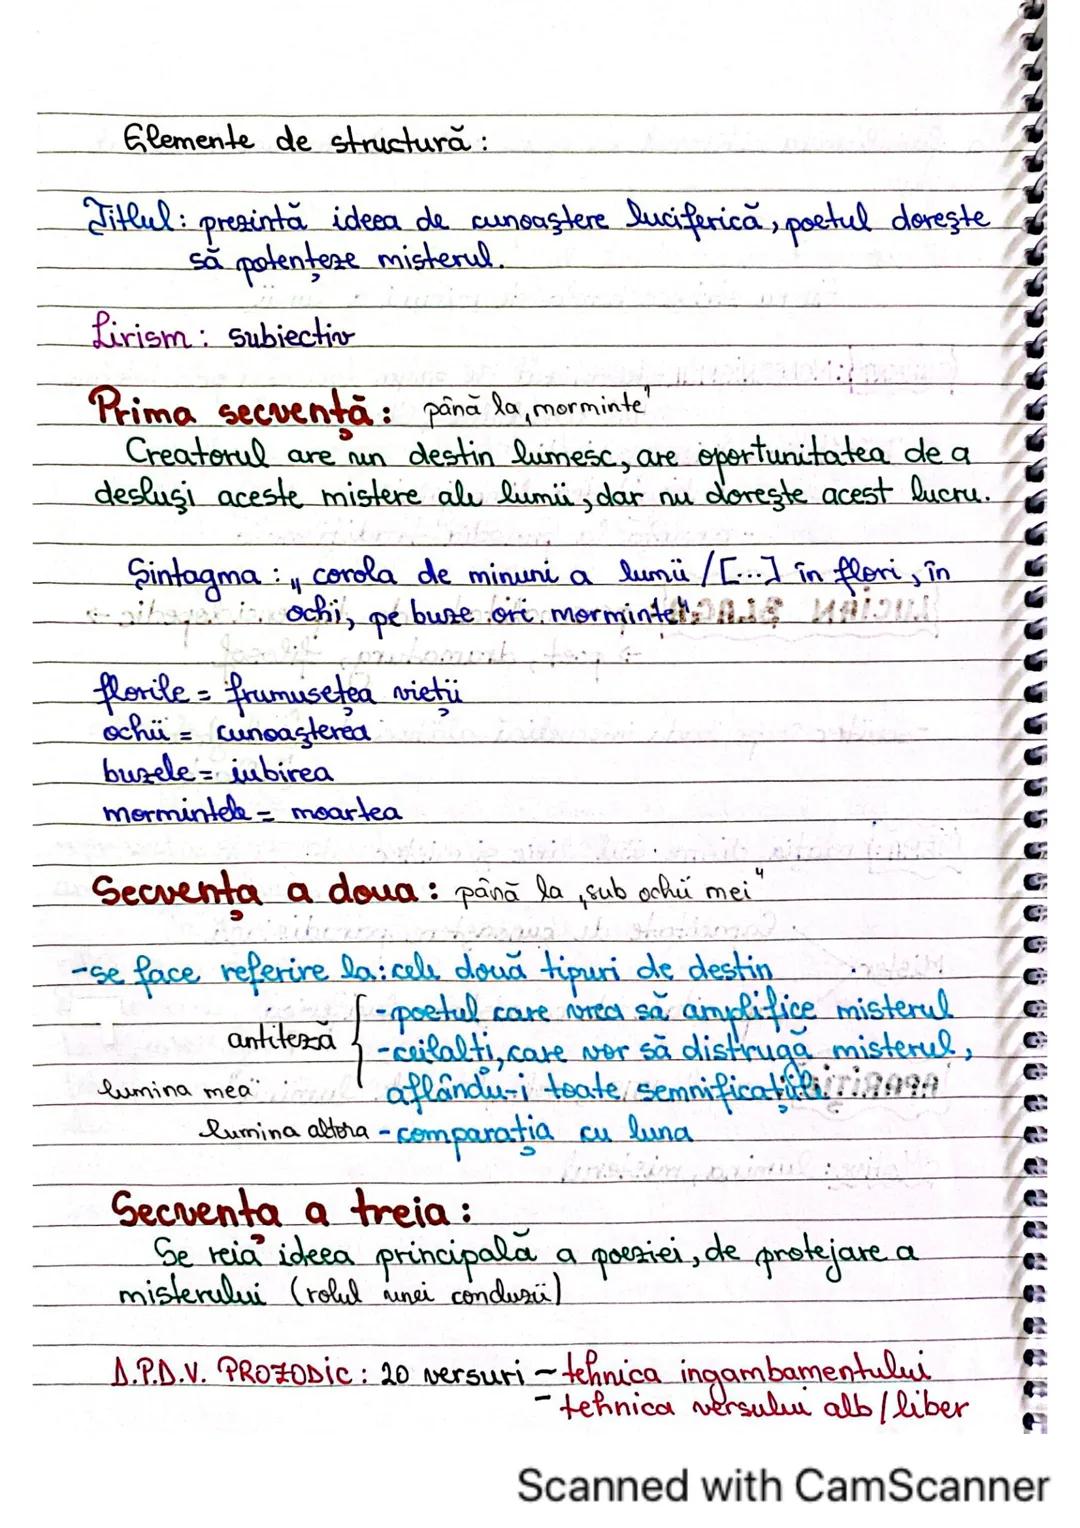 Elemente de structură:
Titlul: prezintă ideea de cunoaștere luciferică, poetul dorește
să potențeze misterul.
Lirism: subiectiv
Prima secvență: până la „morminte"
Creatorul are un destin lumesc, are oportunitatea de a
desluși aceste mistere ale lumii, dar nu dorește acest lucru.
Sintagma: „corola de minuni a lumii /[...] în flori, în
ochi, pe buze ori morminte"
florile = frumusețea vieții
ochii = cunoașterea
buzele = iubirea
mormintele = moartea
Secvența a doua: până la „sub ochii mei"
-se face referire la: cele două tipuri de destin
-poetul care vrea să amplifice misterul
antiteză
-ceilalți, care vor să distrugă misterul,
lumina mea" aflându-i toate semnificațiile
lumina altora - comparația cu luna
Secvența a treia:
Se reia ideea principală a poeziei, de protejare a
misterului (rolul unei concluzii)
D.P.D.V. PROZODIC: 20 versuri - tehnica ingambamentului
- tehnica versului alb/liber
Scanned with CamScanner